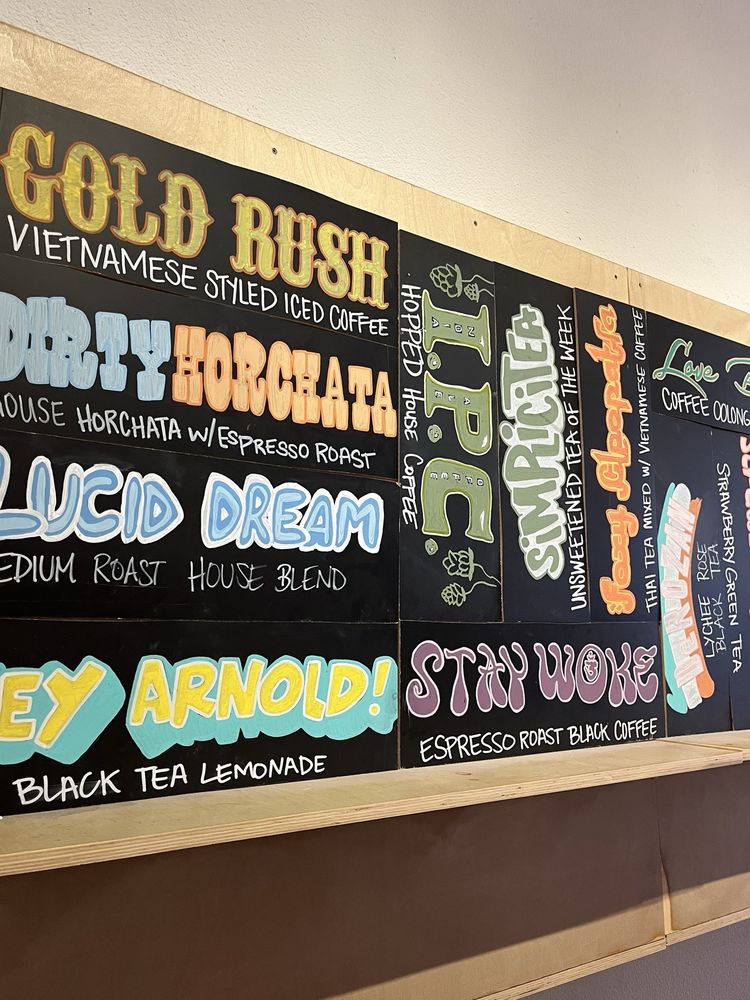 GOLD RUSH
VIETNAMESE STYLED ICED COFFEE
DIRTY HORCHATA
HOUSE HORCHATA W/ESPRESSO ROAST
LUCID DREAM
EDIUM ROAST HOUSE BLEND
EY ARNOLD!
BLACK TEA LEMONADE
I.P.C.
HOPPED HOUSE COFFEE
SiMPLiCiTEA
UNSWEETENED TEA OF THE WEEK
Foxy Cleopatra
THAI TEA MIXED W/ VIETNAMESE COFFEE
STAY WOKE
ESPRESSO ROAST BLACK COFFEE
Love
COFFEE OOLONG
LYCHEE ROSE
BLACK TEA
STRAWBERRY GREEN TEA